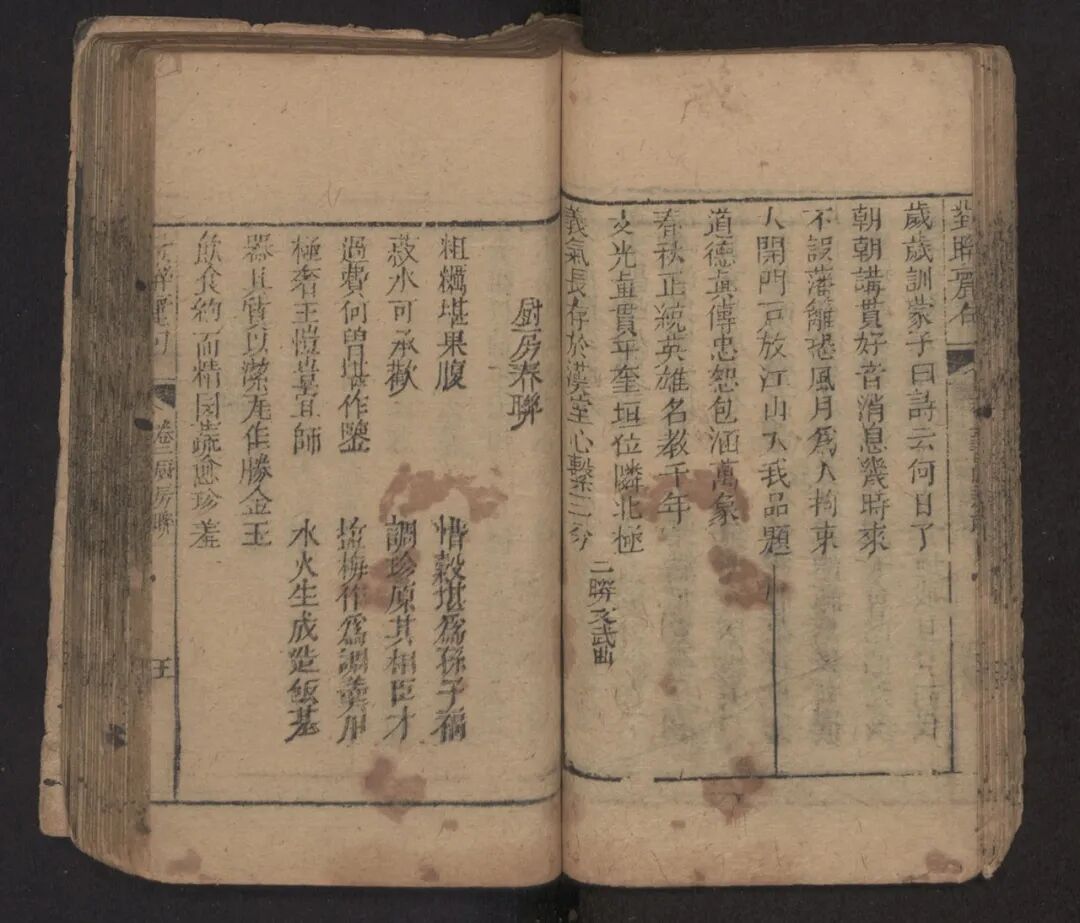 歲歲訓蒙子曰詩云何日了
朝朝講貫好音消息幾時來
不設藩籬恐風月爲人拘束
大開門戸放江山入我品題
道德真傳忠恕包涵萬象
春秋正統英雄名教千年
文光直貫年奎垣位隣北極
義氣長存於漢室心繫三分
二聨文武曲
厨房春聨
粗糲堪果腹 惜穀堪爲孫子福
菽水可承歡 調珍原其相臣才
過費何曽堪作鑒 塩梅作爲調羹用
極奢王愷豈宜師 水火生成造飯基
器具質以潔瓦缶勝金玉
飲食約而精園蔬愈珍羞
卷二厨房聨